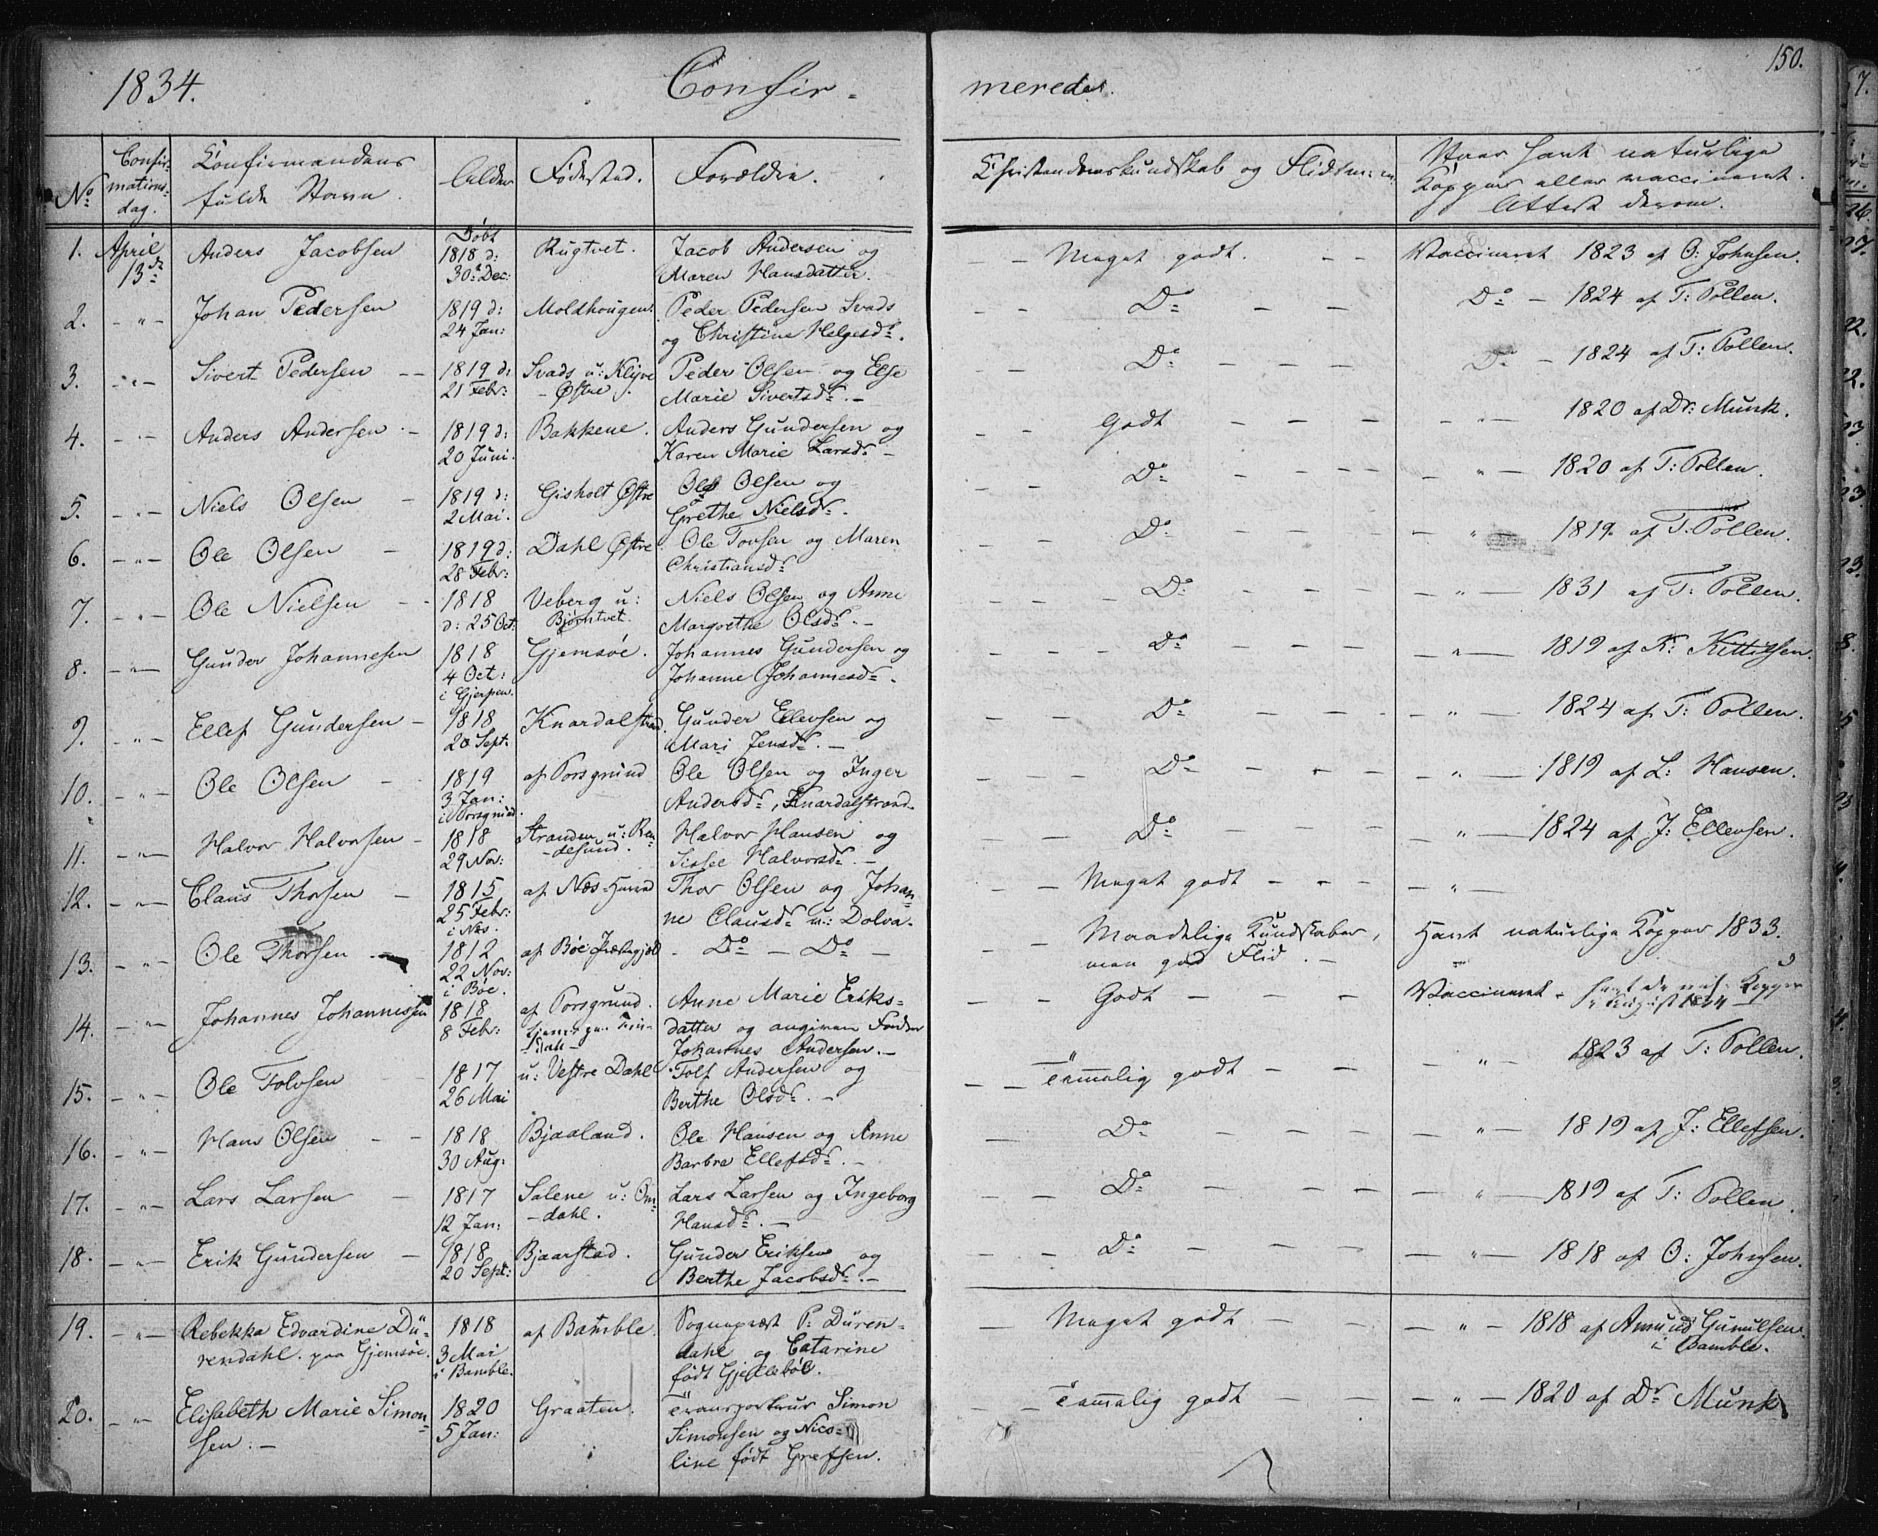 1834. Confir-meredes. 150.
No Confir-mations-dag. Confirmandens fulde Navn. Alder Fødested. Forældre. Christendomskundskab og Flid Naar havt naturlige Kopper eller vaccineret. Attest derom.
1. April 13de Anders Jacobsen Døbt 1818 d: 30 Dec: Rugtvet. Jacob Andersen og Maren Hansdatter. Meget godt. Vaccineret 1823 af O: Johnsen.
2. Johan Pedersen 1819 d: 24 Jan: Moldhougen. Peder Pedersen Svads og Christine Helgesdr. Do Do 1824 af T: Pollen.
3. Sivert Pedersen 1819 d: 21 Febr: Svads u: Klyve Østre. Peder Olsen og Else Marie Sivertsdr. Do Do 1824 af T: Pollen.
4. Anders Andersen 1819 d: 20 Juni. Bakkene. Anders Gundersen og Karen Marie Larsdr. Godt 1820 af Dr: Munk.
5. Niels Olsen 1819 d: 2 Mai. Gisholt Østre Ole Olsen og Grethe Nielsdr. Do 1820 af T: Pollen.
6. Ole Olsen 1819 d: 28 Febr: Dahl Østre Ole Tovsen og Maren Christiansdr Do 1819 af T. Pollen.
7. Ole Nielsen 1818 d: 25 Oct: Veberg u: Bjørntvet. Niels Olsen og Anne Margrethe Olsdr. Do 1831 af T: Pollen.
8. Gunder Johannesen 1818 4 Oct: i Gjerpen. Gjemsøe. Johannes Gundersen og Johanne Johannesdr. Do 1819 af K: Kittilsen.
9. Ellef Gundersen 1818 20 Sept: Knardalstrand. Gunder Ellevsen og Mari Jensdr. Do 1824 af T: Pollen.
10. Ole Olsen 1819 3 Jan: i Porsgrund. af Porsgrund Ole Olsen og Inger Andersdr, Knardalstrand. Do 1819 af L: Hansen.
11. Halvor Halvorsen 1818 29 Nov: Stranden u: Ren-desund. Halvor Hansen og Sissel Halvorsdr. Do 1824 af J: Ellevsen.
12. Claus Thorsen 1815 25 Febr: i Næs. af Næs-Herred Thor Olsen og Johan-ne Clausdr u: Dolva. Meget godt
13. Ole Thorsen 1812 22 Nov: i Bøe. af Bøe Præstegjeld. Do Do Maadelige Kundskaber, men god Flid. Havt naturlige Kopper 1833.
14. Johannes Johannessen 1818 8 Febr: af Porsgrund. Anne Marie Eriks-datter og angiven Fader Johannes Andersen. Godt Vaccineret 1834
15. Ole Tolvsen 1817 26 Mai u: Vestre Dahl Tolf Andersen og Berthe Olsdr. Temmelig godt 1823 af T: Pollen.
16. Hans Olsen 1818 30 Aug: Bjaaland. Ole Hansen og Anne Barbra Ellefsdr. Do 1819 af J: Ellefsen.
17. Lars Larsen 1817 12 Jan: Salene u: Om-dahl. Lars Larsen og Ingeborg Hansdr. Do 1819 af T: Pollen.
18. Erik Gundersen 1818 20 Sept: Bjaarstad. Gunder Eriksen og Berthe Jacobsdr. Do 1818 af O: Johnsen.
19. Rebekka Edvardine Dü-rendahl. paa Gjemsøe. 1818 3 Mai i Bamble. af Bamble. Sognepræst P: Düren-dahl og Catarine født Gjellebøl. Meget godt 1818 af Amund Gunulfsen i Bamble.
20. Elisabeth Marie Simon-sen. 1820 5 Jan: Graaten. Simon Simonsen og Nico-line født Grefsen. Temmelig godt 1820 af Dr Munk